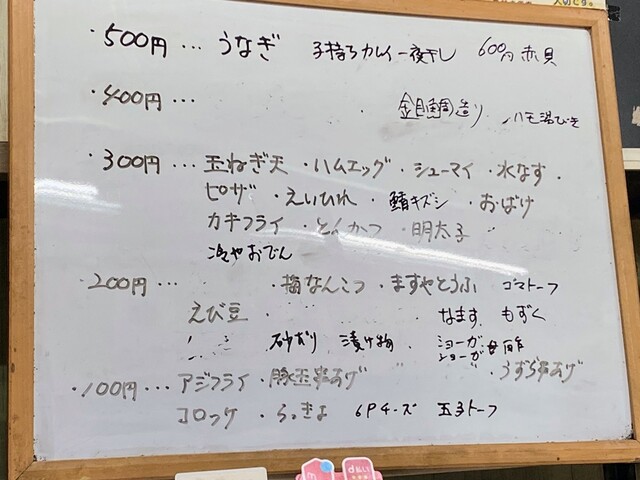 ・500円… うなぎ 子持ちカレイ一夜干し 600円 赤貝
・400円… 金目鯛造り ハモ湯びき
・300円… 玉ねぎ天・ハムエッグ・シューマイ・水なす・
ピザ・えいひれ・鯖キズシ・おばけ
カキフライ・とんかつ・明太子
冷やおでん
・200円… ・梅なんこつ・ますやとうふ ゴマトーフ
えび豆 なます もずく
砂ずり 漬け物 ショーガ
・100円… アジフライ・豚玉串あげ ・うずら串あげ
コロッケ・らっきょ 6Pチーズ 玉子トーフ
d払い